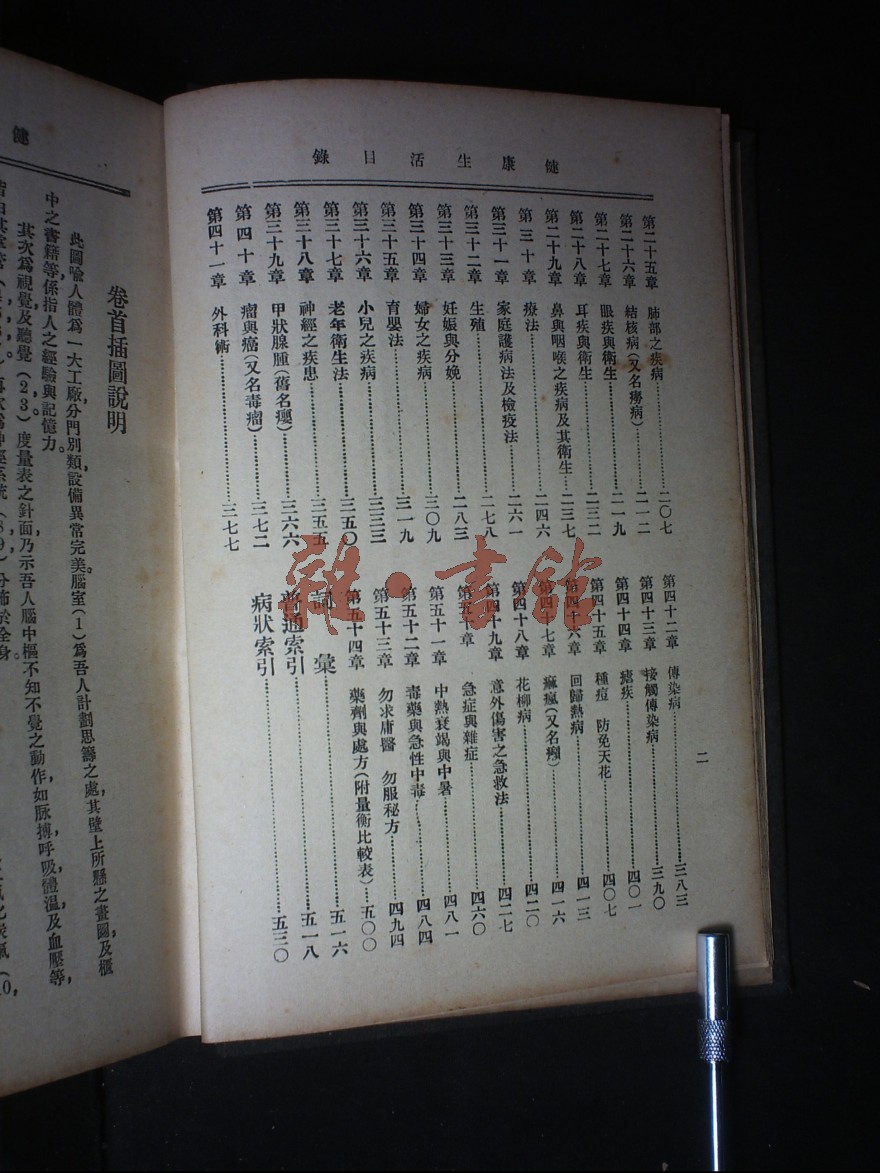 健康生活目錄
第二十五章 肺部之疾病 二〇七
第二十六章 結核病(又名癆病) 二一二
第二十七章 眼疾與衛生 二一九
第二十八章 耳疾與衛生 二三二
第二十九章 鼻與咽喉之疾病及其衛生 二三七
第三十章 療法 二四六
第三十一章 家庭護病法及檢疫法 二六一
第三十二章 生殖 二七八
第三十三章 妊娠與分娩 二八三
第三十四章 婦女之疾病 三〇九
第三十五章 育嬰法 三一九
第三十六章 小兒之疾病 三三三
第三十七章 老年衛生法 三五〇
第三十八章 神經之疾患 三五五
第三十九章 甲狀腺腫(舊名癭) 三六六
第四十章 瘤與癌(又名毒瘤) 三七二
第四十一章 外科術 三七七
第四十二章 傳染病 三八三
第四十三章 接觸傳染病 三九〇
第四十四章 瘧疾 四〇一
第四十五章 種痘 防免天花 四〇七
第四十六章 回歸熱病 四一三
第四十七章 痲瘋(又名癩) 四一六
第四十八章 花柳病 四二〇
第四十九章 意外傷害之急救法 四二七
第五十章 急症與雜症 四六〇
第五十一章 中熱衰竭與中暑 四八一
第五十二章 毒藥與急性中毒 四八四
第五十三章 勿求庸醫 勿服秘方 四九四
第五十四章 藥劑與處方(附量衡比較表) 五〇〇
詞彙 五一六
普通索引 五一八
病狀索引 五三〇
二
雜·書館
健
卷首插圖說明
此圖喻人體為一大工廠分門別類,設備異常完美。腦室(1)為吾人計劃思籌之處,其壁上所懸之畫圖,及櫃
中之書籍等,係指人之經驗與記憶力。
其次為視覺及聽覺(2,3)。度量表之針面,乃示吾人腦中樞不知不覺之動作,如脉搏,呼吸,體温,及血壓等,